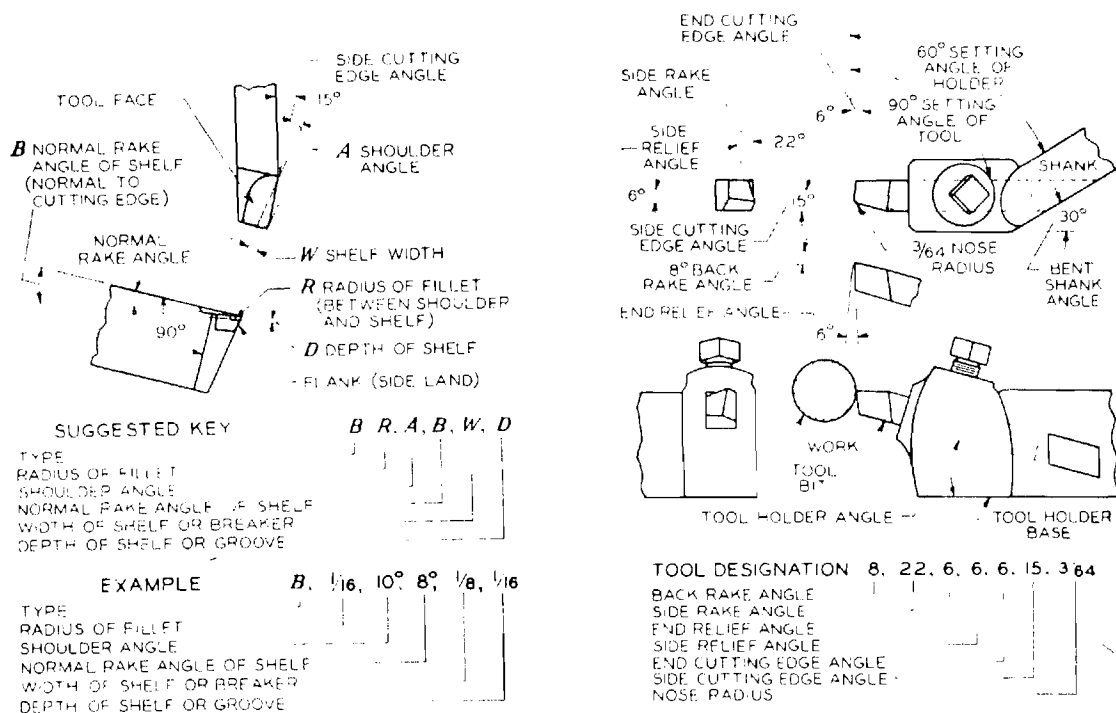 SIDE CUTTING
EDGE ANGLE
15°
TOOL FACE
B NORMAL RAKE
ANGLE OF SHELF
(NORMAL TO
CUTTING EDGE)
A SHOULDER
ANGLE
NORMAL
RAKE ANGLE
W SHELF WIDTH
R RADIUS OF FILLET
(BETWEEN SHOULDER
AND SHELF)
90°
D DEPTH OF SHELF
FLANK (SIDE LAND)
SUGGESTED KEY B R. A, B, W, D
TYPE
RADIUS OF FILLET
SHOULDER ANGLE
NORMAL RAKE ANGLE OF SHELF
WIDTH OF SHELF OR BREAKER
DEPTH OF SHELF OR GROOVE
EXAMPLE B, 1/16, 10°, 8°, 1/8, 1/16
TYPE
RADIUS OF FILLET
SHOULDER ANGLE
NORMAL RAKE ANGLE OF SHELF
WIDTH OF SHELF OR BREAKER
DEPTH OF SHELF OR GROOVE
END CUTTING
EDGE ANGLE
60° SETTING
ANGLE OF
HOLDER
SIDE RAKE
ANGLE
6°
90° SETTING
ANGLE OF
TOOL
SIDE
RELIEF
ANGLE
22°
SHANK
6°
15°
30°
SIDE CUTTING
EDGE ANGLE
3/64 NOSE
RADIUS
8° BACK
RAKE ANGLE
BENT
SHANK
ANGLE
END RELIEF ANGLE
6°
WORK
TOOL
BIT
TOOL HOLDER ANGLE
TOOL HOLDER
BASE
TOOL DESIGNATION 8, 22, 6, 6, 6, 15, 3/64
BACK RAKE ANGLE
SIDE RAKE ANGLE
END RELIEF ANGLE
SIDE RELIEF ANGLE
END CUTTING EDGE ANGLE
SIDE CUTTING EDGE ANGLE
NOSE RADIUS